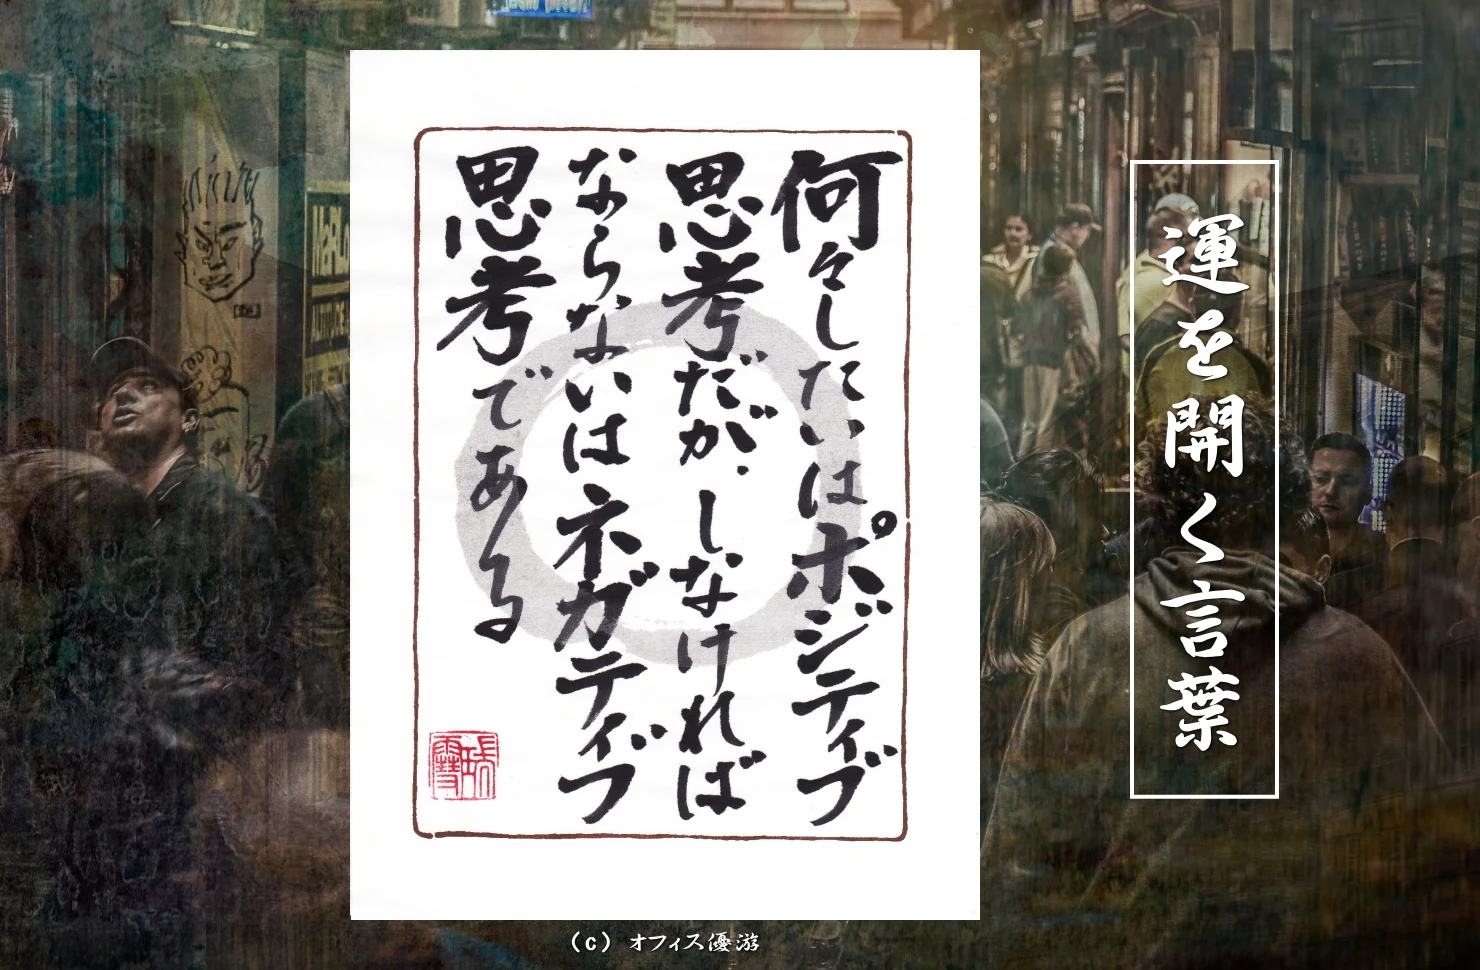 運を開く言葉
何々したいはポジティブ
思考だが、しなければ
ならないはネガティブ
思考である
(c) オフィス優游